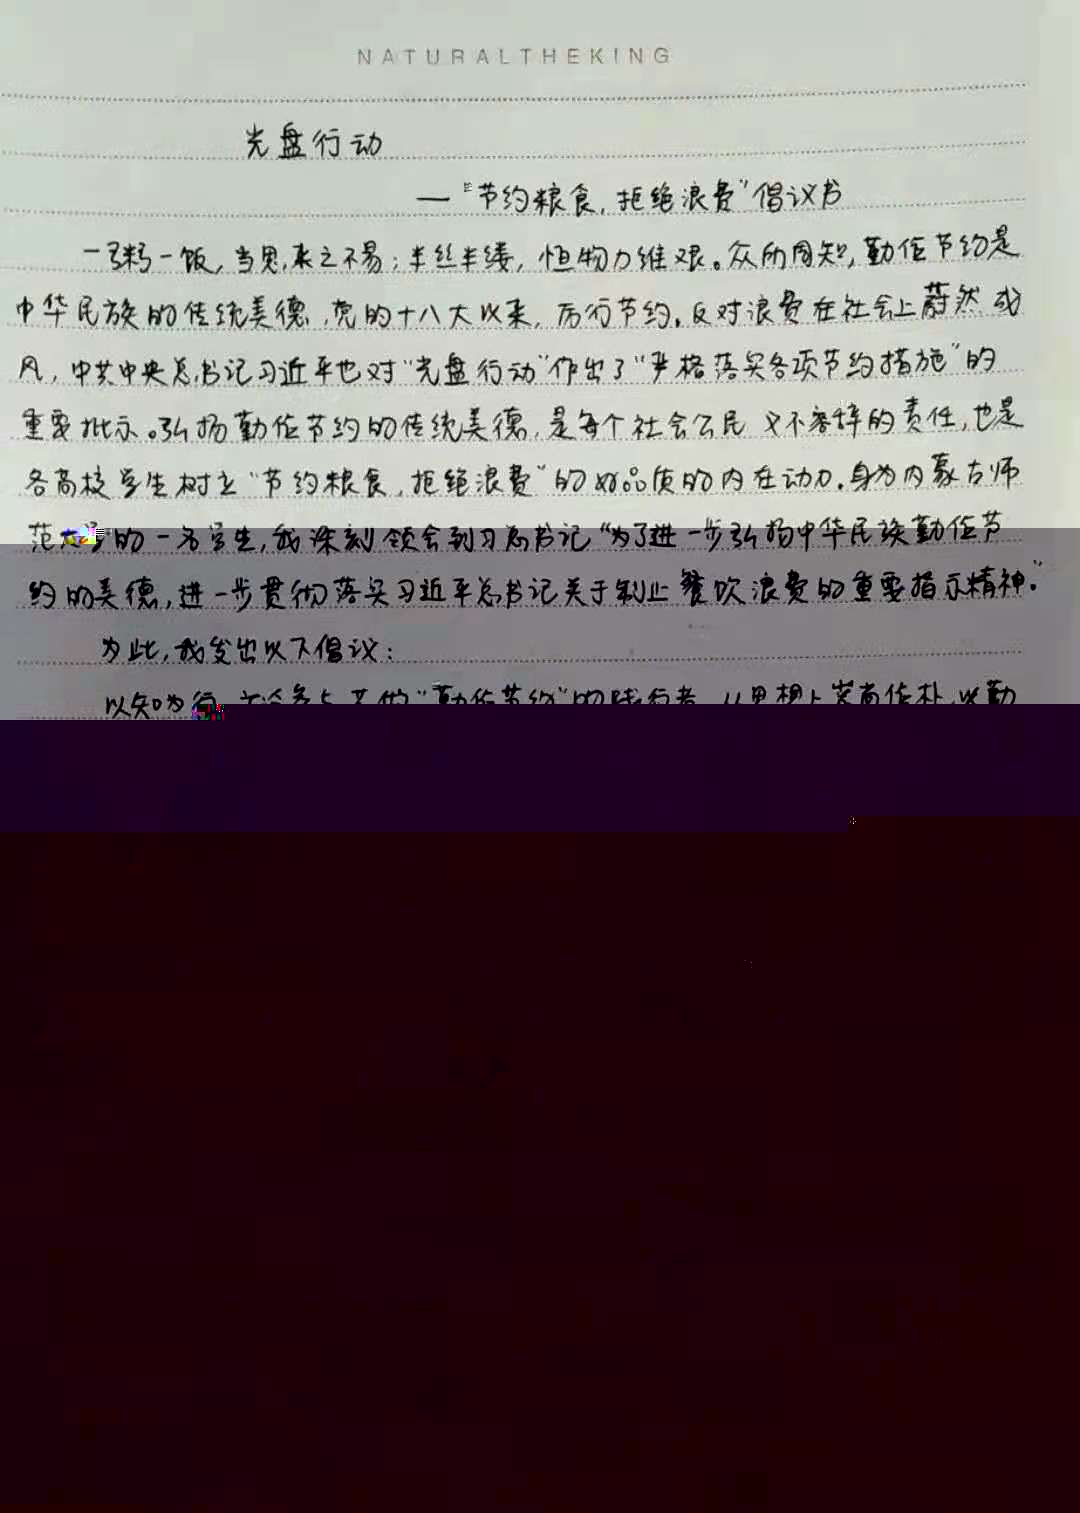 NATURALTHEKING
光盘行动
—“节约粮食,拒绝浪费”倡议书
一粥一饭,当思来之不易;半丝半缕,恒物力维艰。众所周知,勤俭节约是
中华民族的传统美德,党的十八大以来,厉行节约,反对浪费在社会上蔚然成
风,中共中央总书记习近平也对“光盘行动”作出了“严格落实各项节约措施”的
重要批示。弘扬勤俭节约的传统美德,是每个社会公民义不容辞的责任,也是
各高校学生树立“节约粮食,拒绝浪费”的好品质的内在动力.身为内蒙古师
范大学的一名学生,我深刻领会到习总书记“为了进一步弘扬中华民族勤俭节
约的美德,进一步贯彻落实习近平总书记关于制止餐饮浪费的重要指示精神.”
为此,我发出以下倡议:
以知为行,“勤俭节约”的践行者